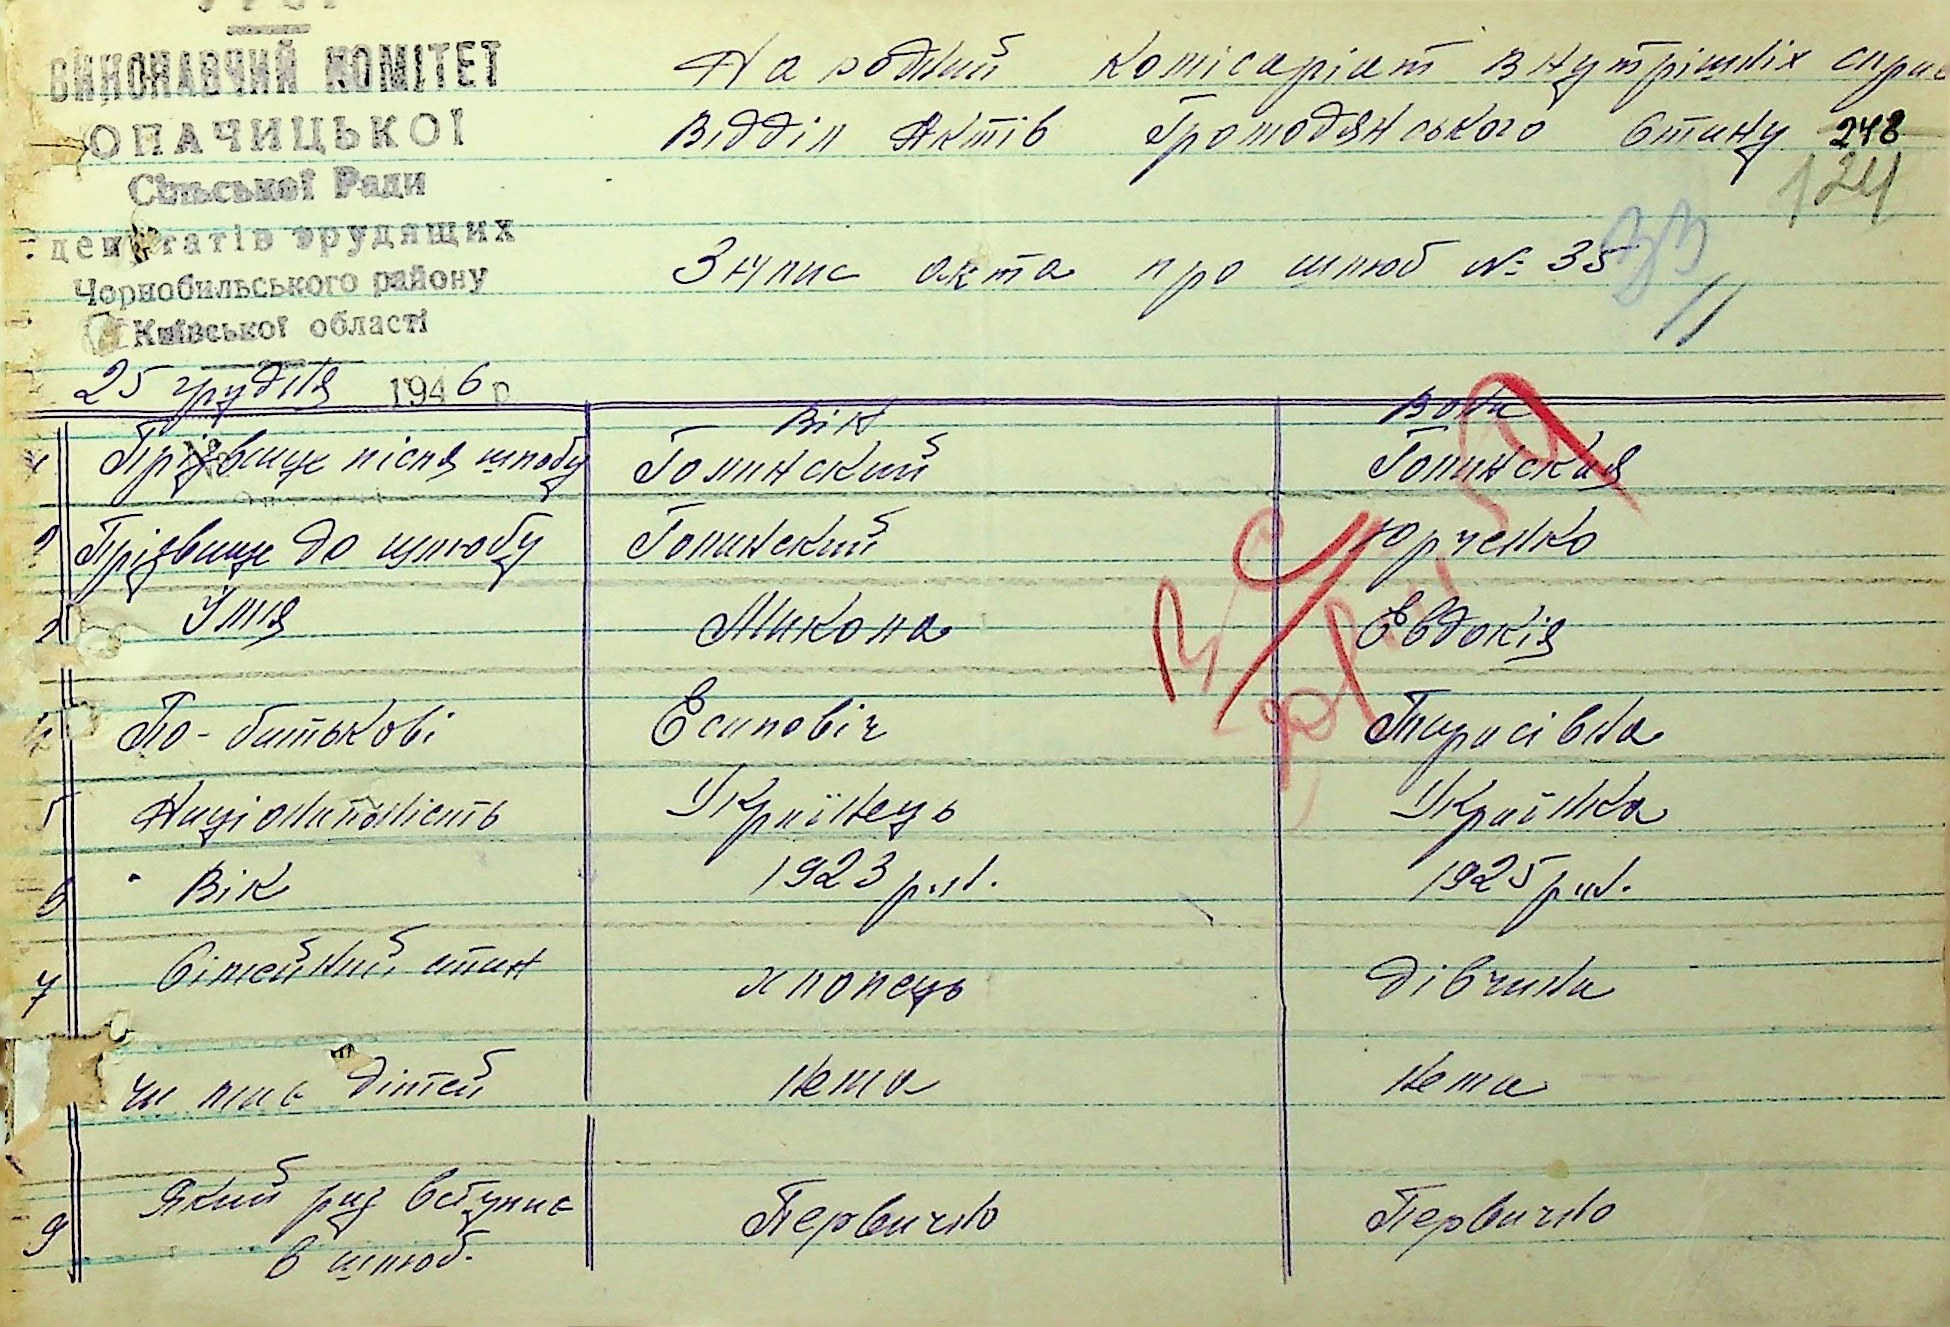 УРСР
ВИКОНАВЧИЙ КОМІТЕТ
ОПАЧИЦЬКОЇ
Сільської Ради
депутатів трудящих
Чорнобильського району
Київської області
25 грудня 1946 р
Народний комісаріат внутрішніх справ
Відділ Актів Громодянського Стану 248
124
Запис акта про шлюб № 35
Він Вона
1 Прізвище після шлюбу Голинский Голинская
2 Прізвище до шлюбу Голинский Юрченко
Імя Микола Евдокія
4 По-батькові Есиповіч Тарасівна
5 Національність Українець Українка
6 Вік 1923 р.н. 1925 р.н.
7 Сімейний стан хлопець дівчина
чи має дітей нема нема
9 Який раз вступає Первично Первично
в шлюб.